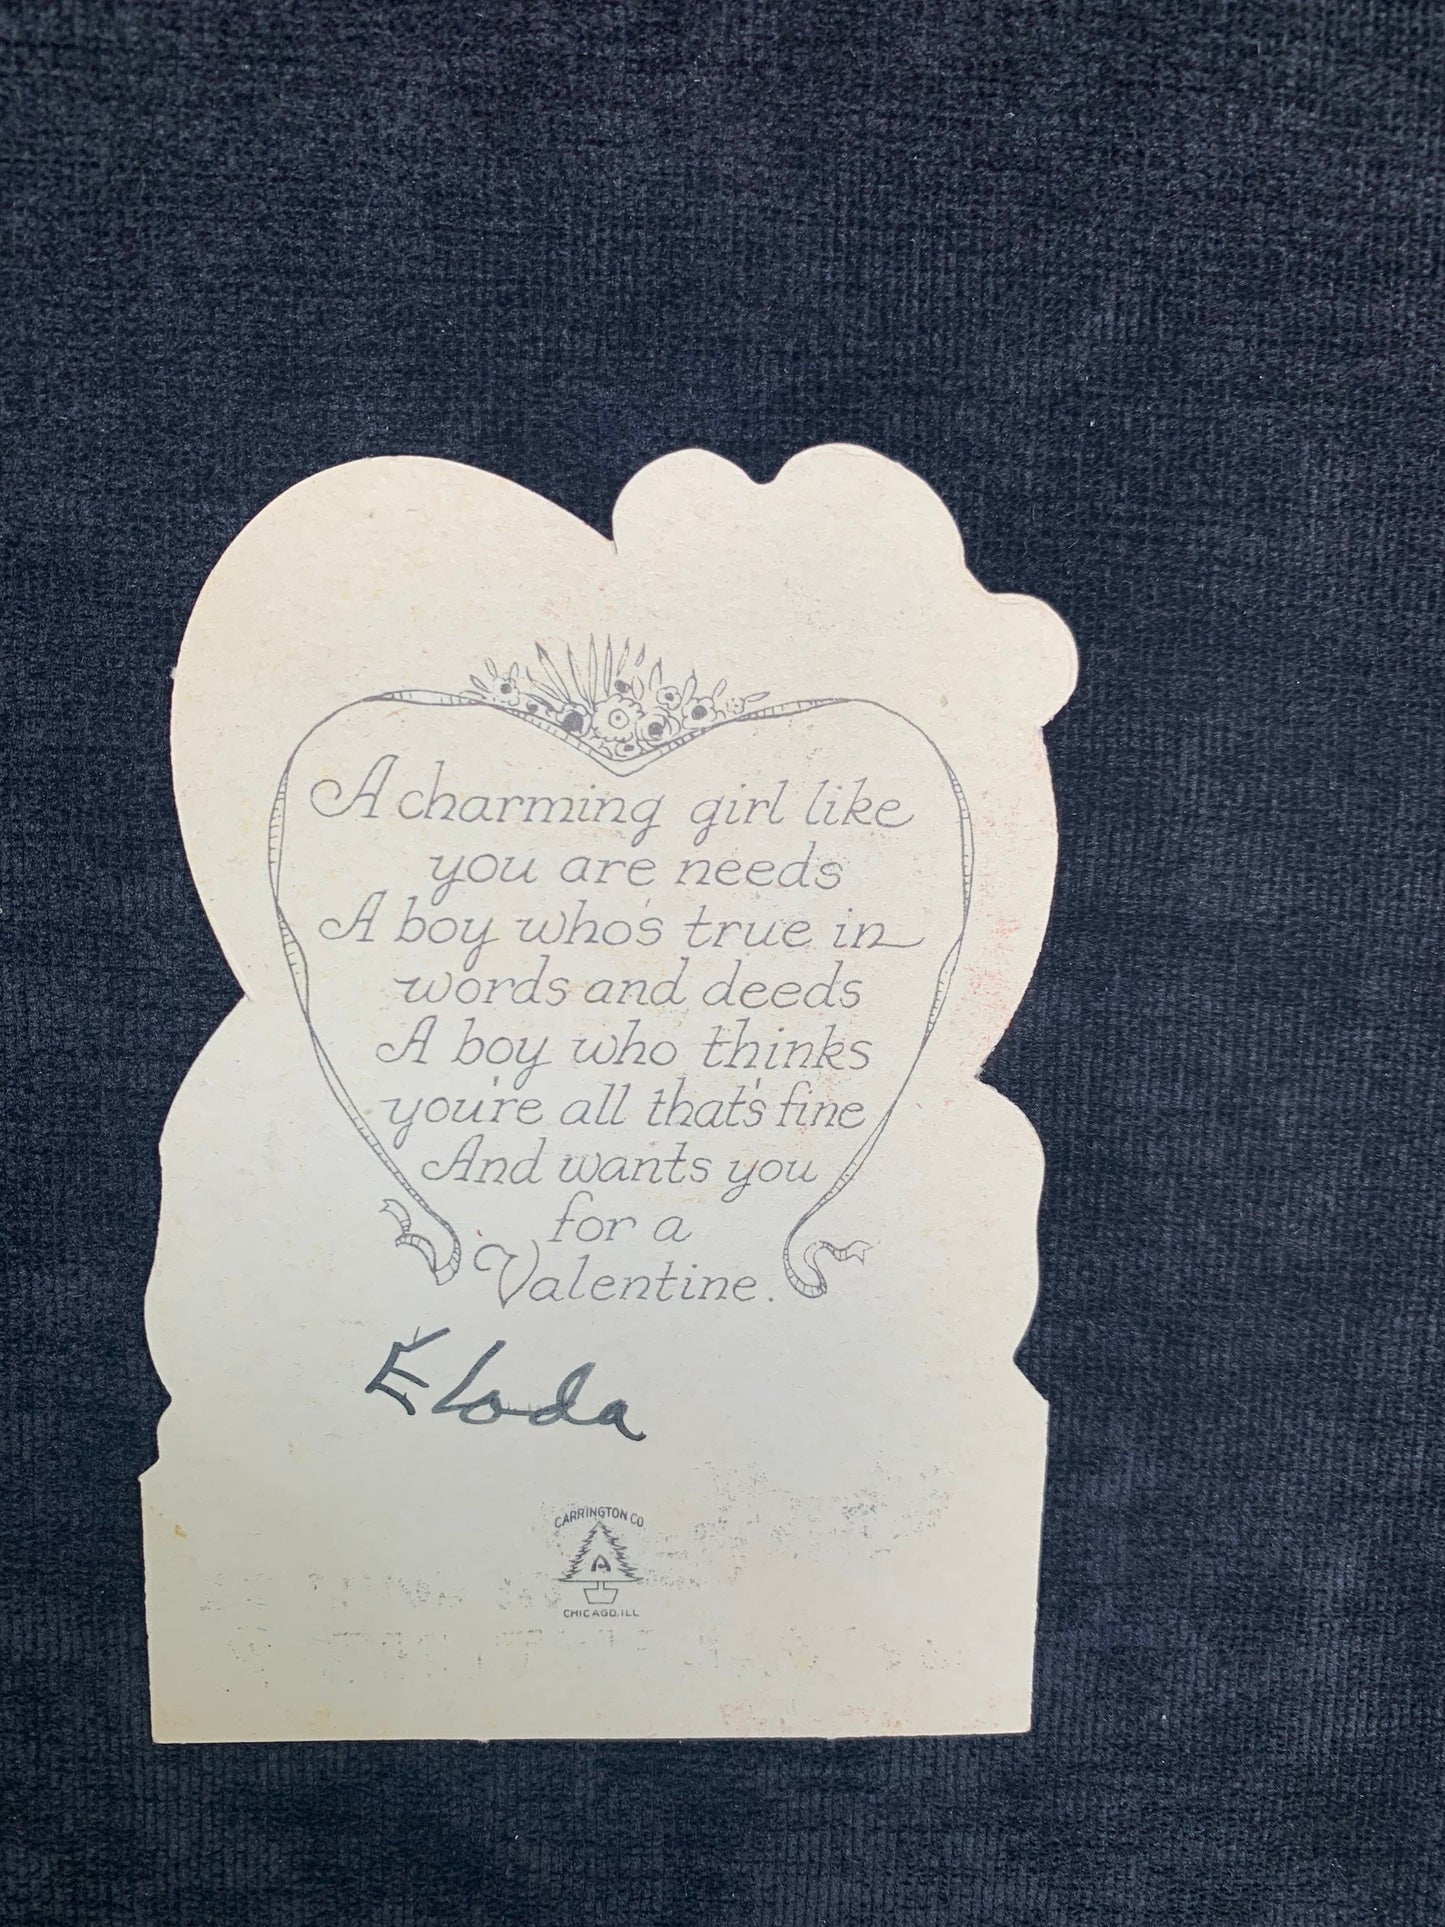 A charming girl like
you are needs
A boy who's true in
words and deeds
A boy who thinks
you're all that's fine
And wants you
for a
Valentine.
Eloda
CARRINGTON CO
A
CHICAGO, ILL